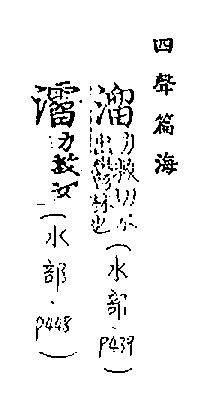 四聲篇海
溜力救切水出鬱林也(水部.p439)
灀力救切(水部.p448)